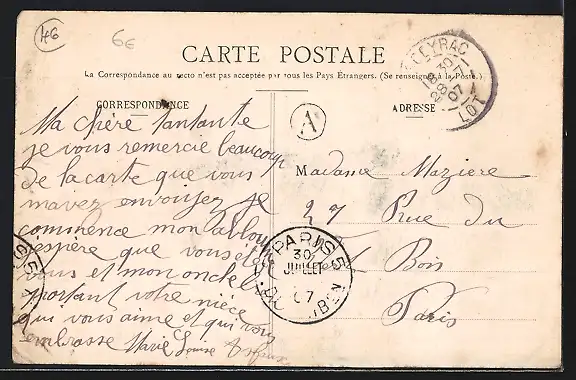 46
66
CARTE POSTALE
La Correspondance au recto n'est pas acceptée par tous les Pays Étrangers. (Se renseigner à la Poste.)
CORRESPONDANCE
ADRESSE
LOT
28-7
07
A
Ma chère tantante
je vous remercie beaucoup
de la carte que vous
mavez envoyez je
commence mon
espère que vous
vous et mon oncle
votre nièce
qui vous aime et qui vous
embrasse Marie Louise
Madame Maziere
27 Rue du
Bois
Paris
PARIS 5
30
JUILLET
07